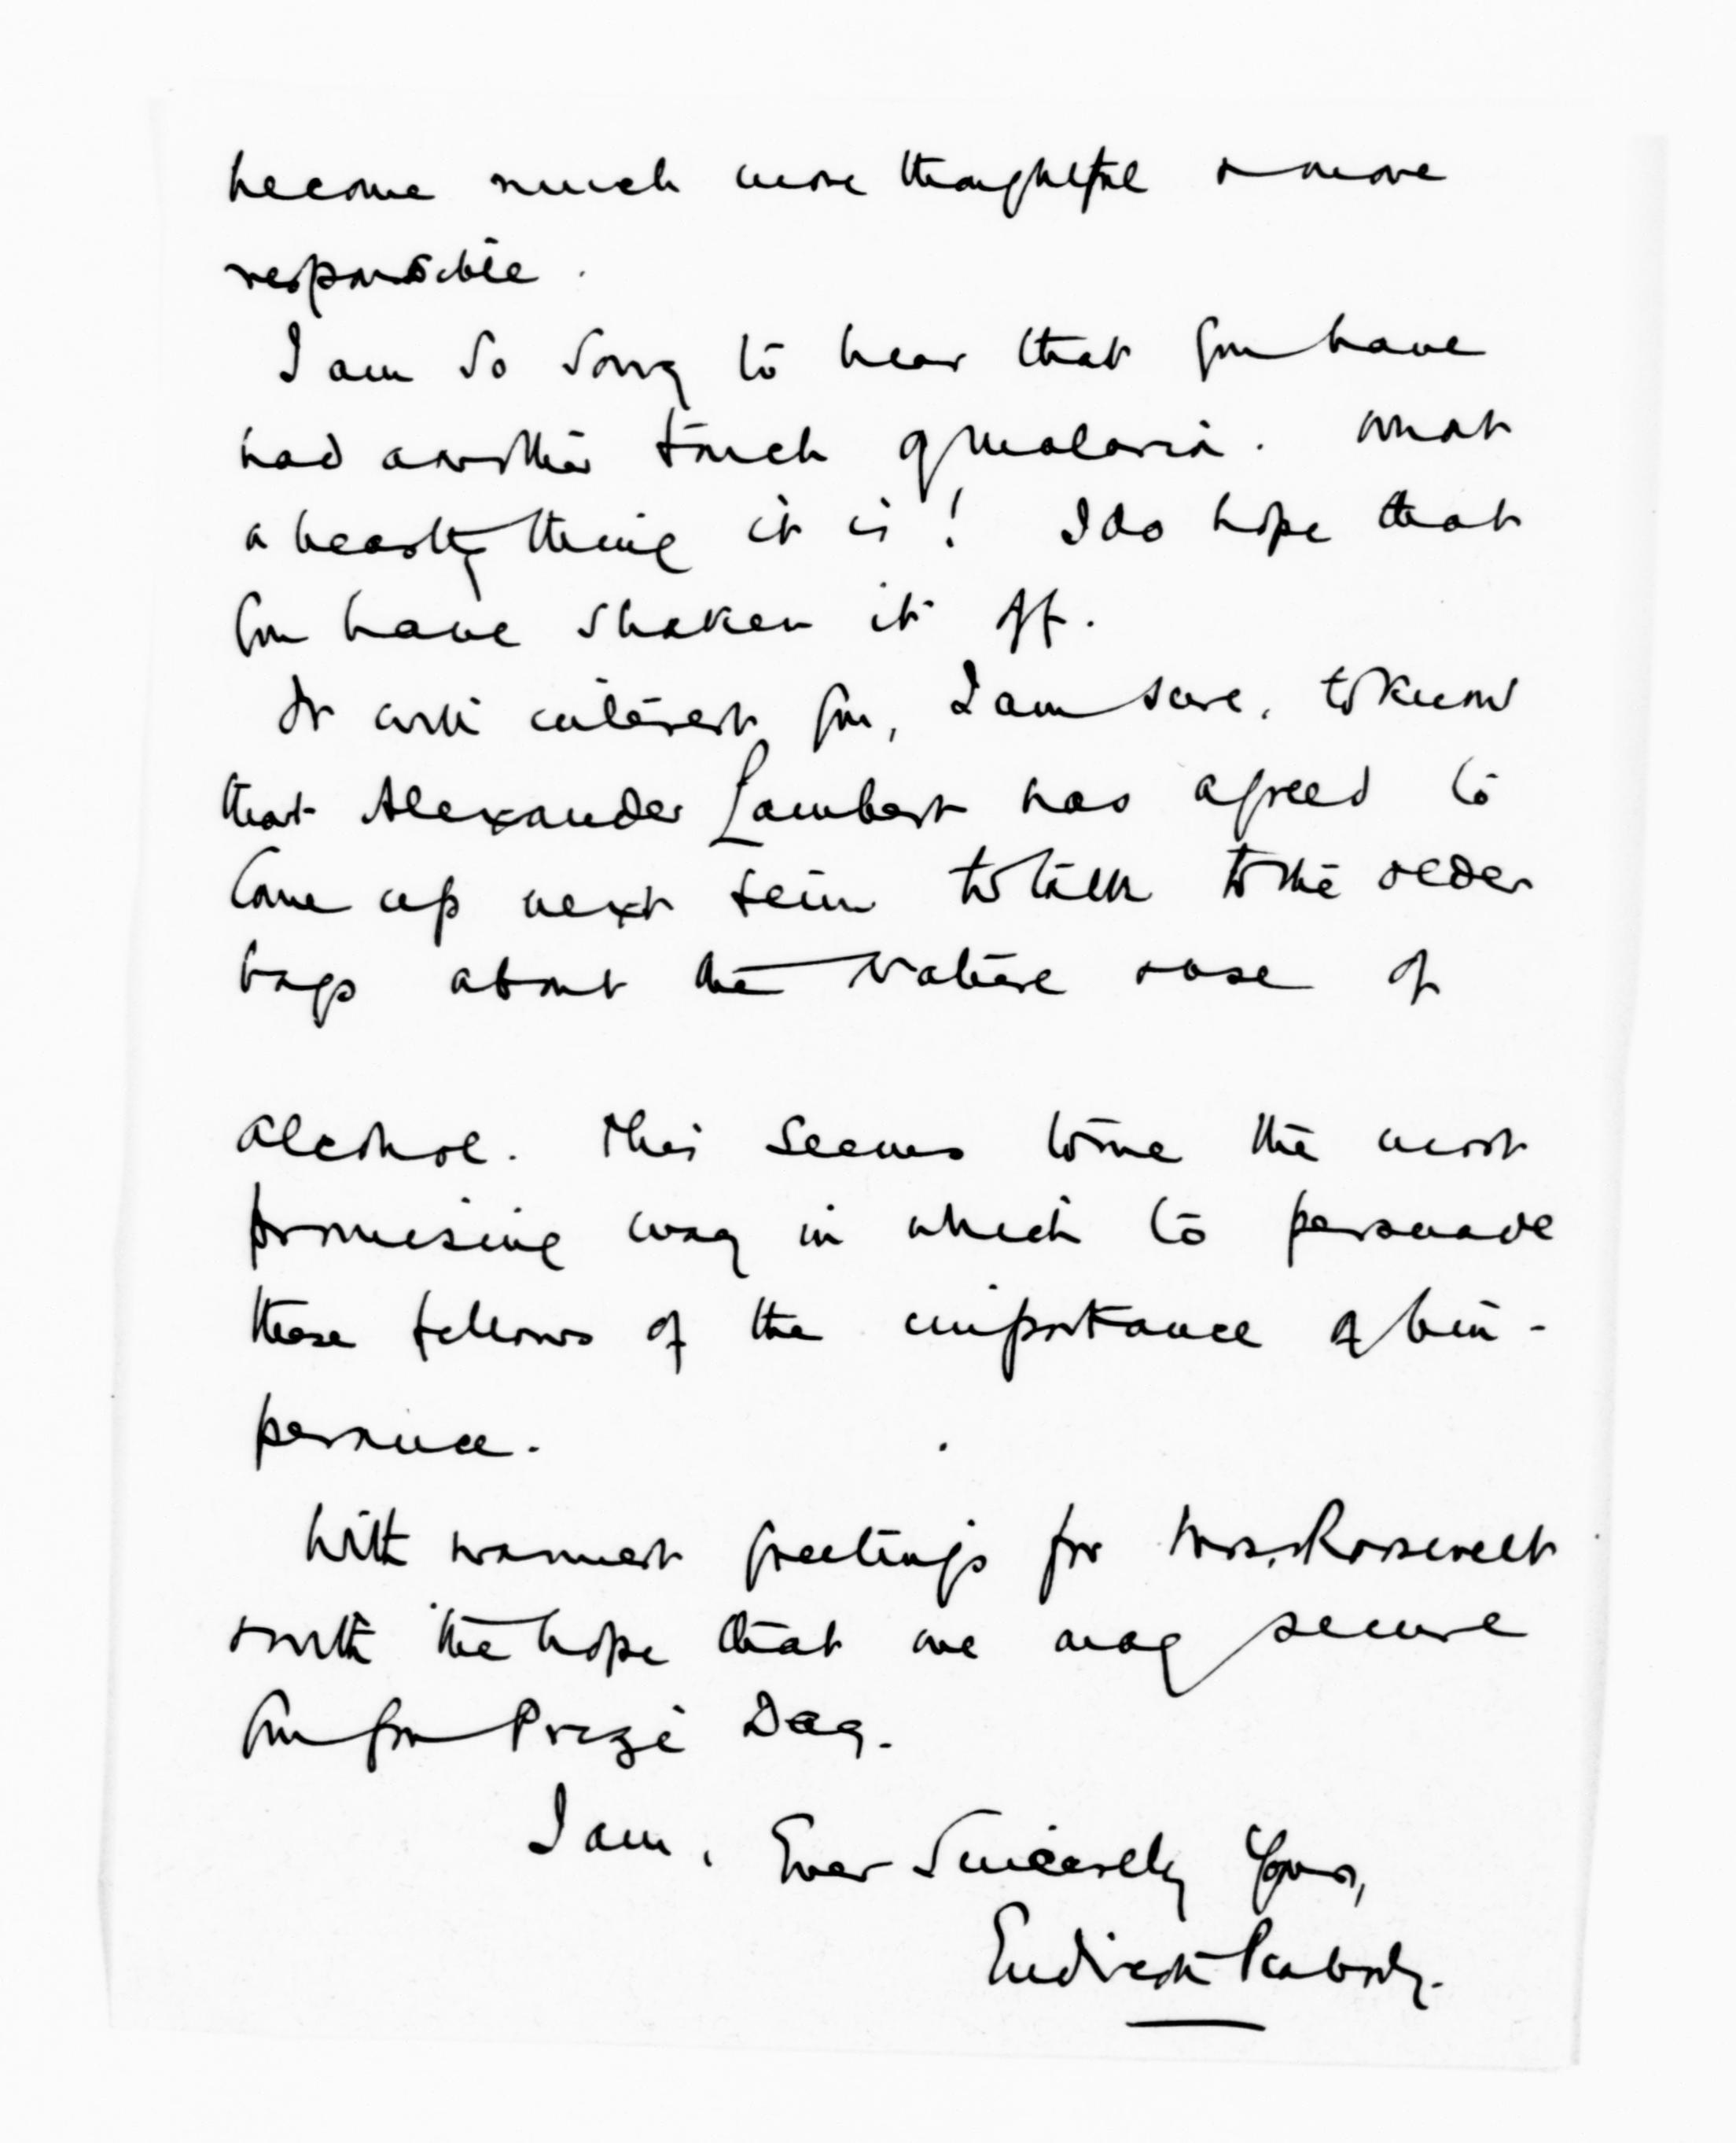 become much more thoughtful & more
responsible.
I am so sorry to hear that you have
had another touch of malaria. What
a beastly thing it is! I do hope that
you have shaken it off.
It will interest you, I am sure, to know
that Alexander Lambert has agreed to
come up next term to talk to the older
boys about the nature & use of
alcohol. This seems to me the most
promising way in which to persuade
these fellows of the importance of tem-
perance.
With warmest greetings for Mrs. Roosevelt
& with the hope that we may secure
you for Prize Day.
I am, Ever Sincerely Yours,
Endicott Peabody.